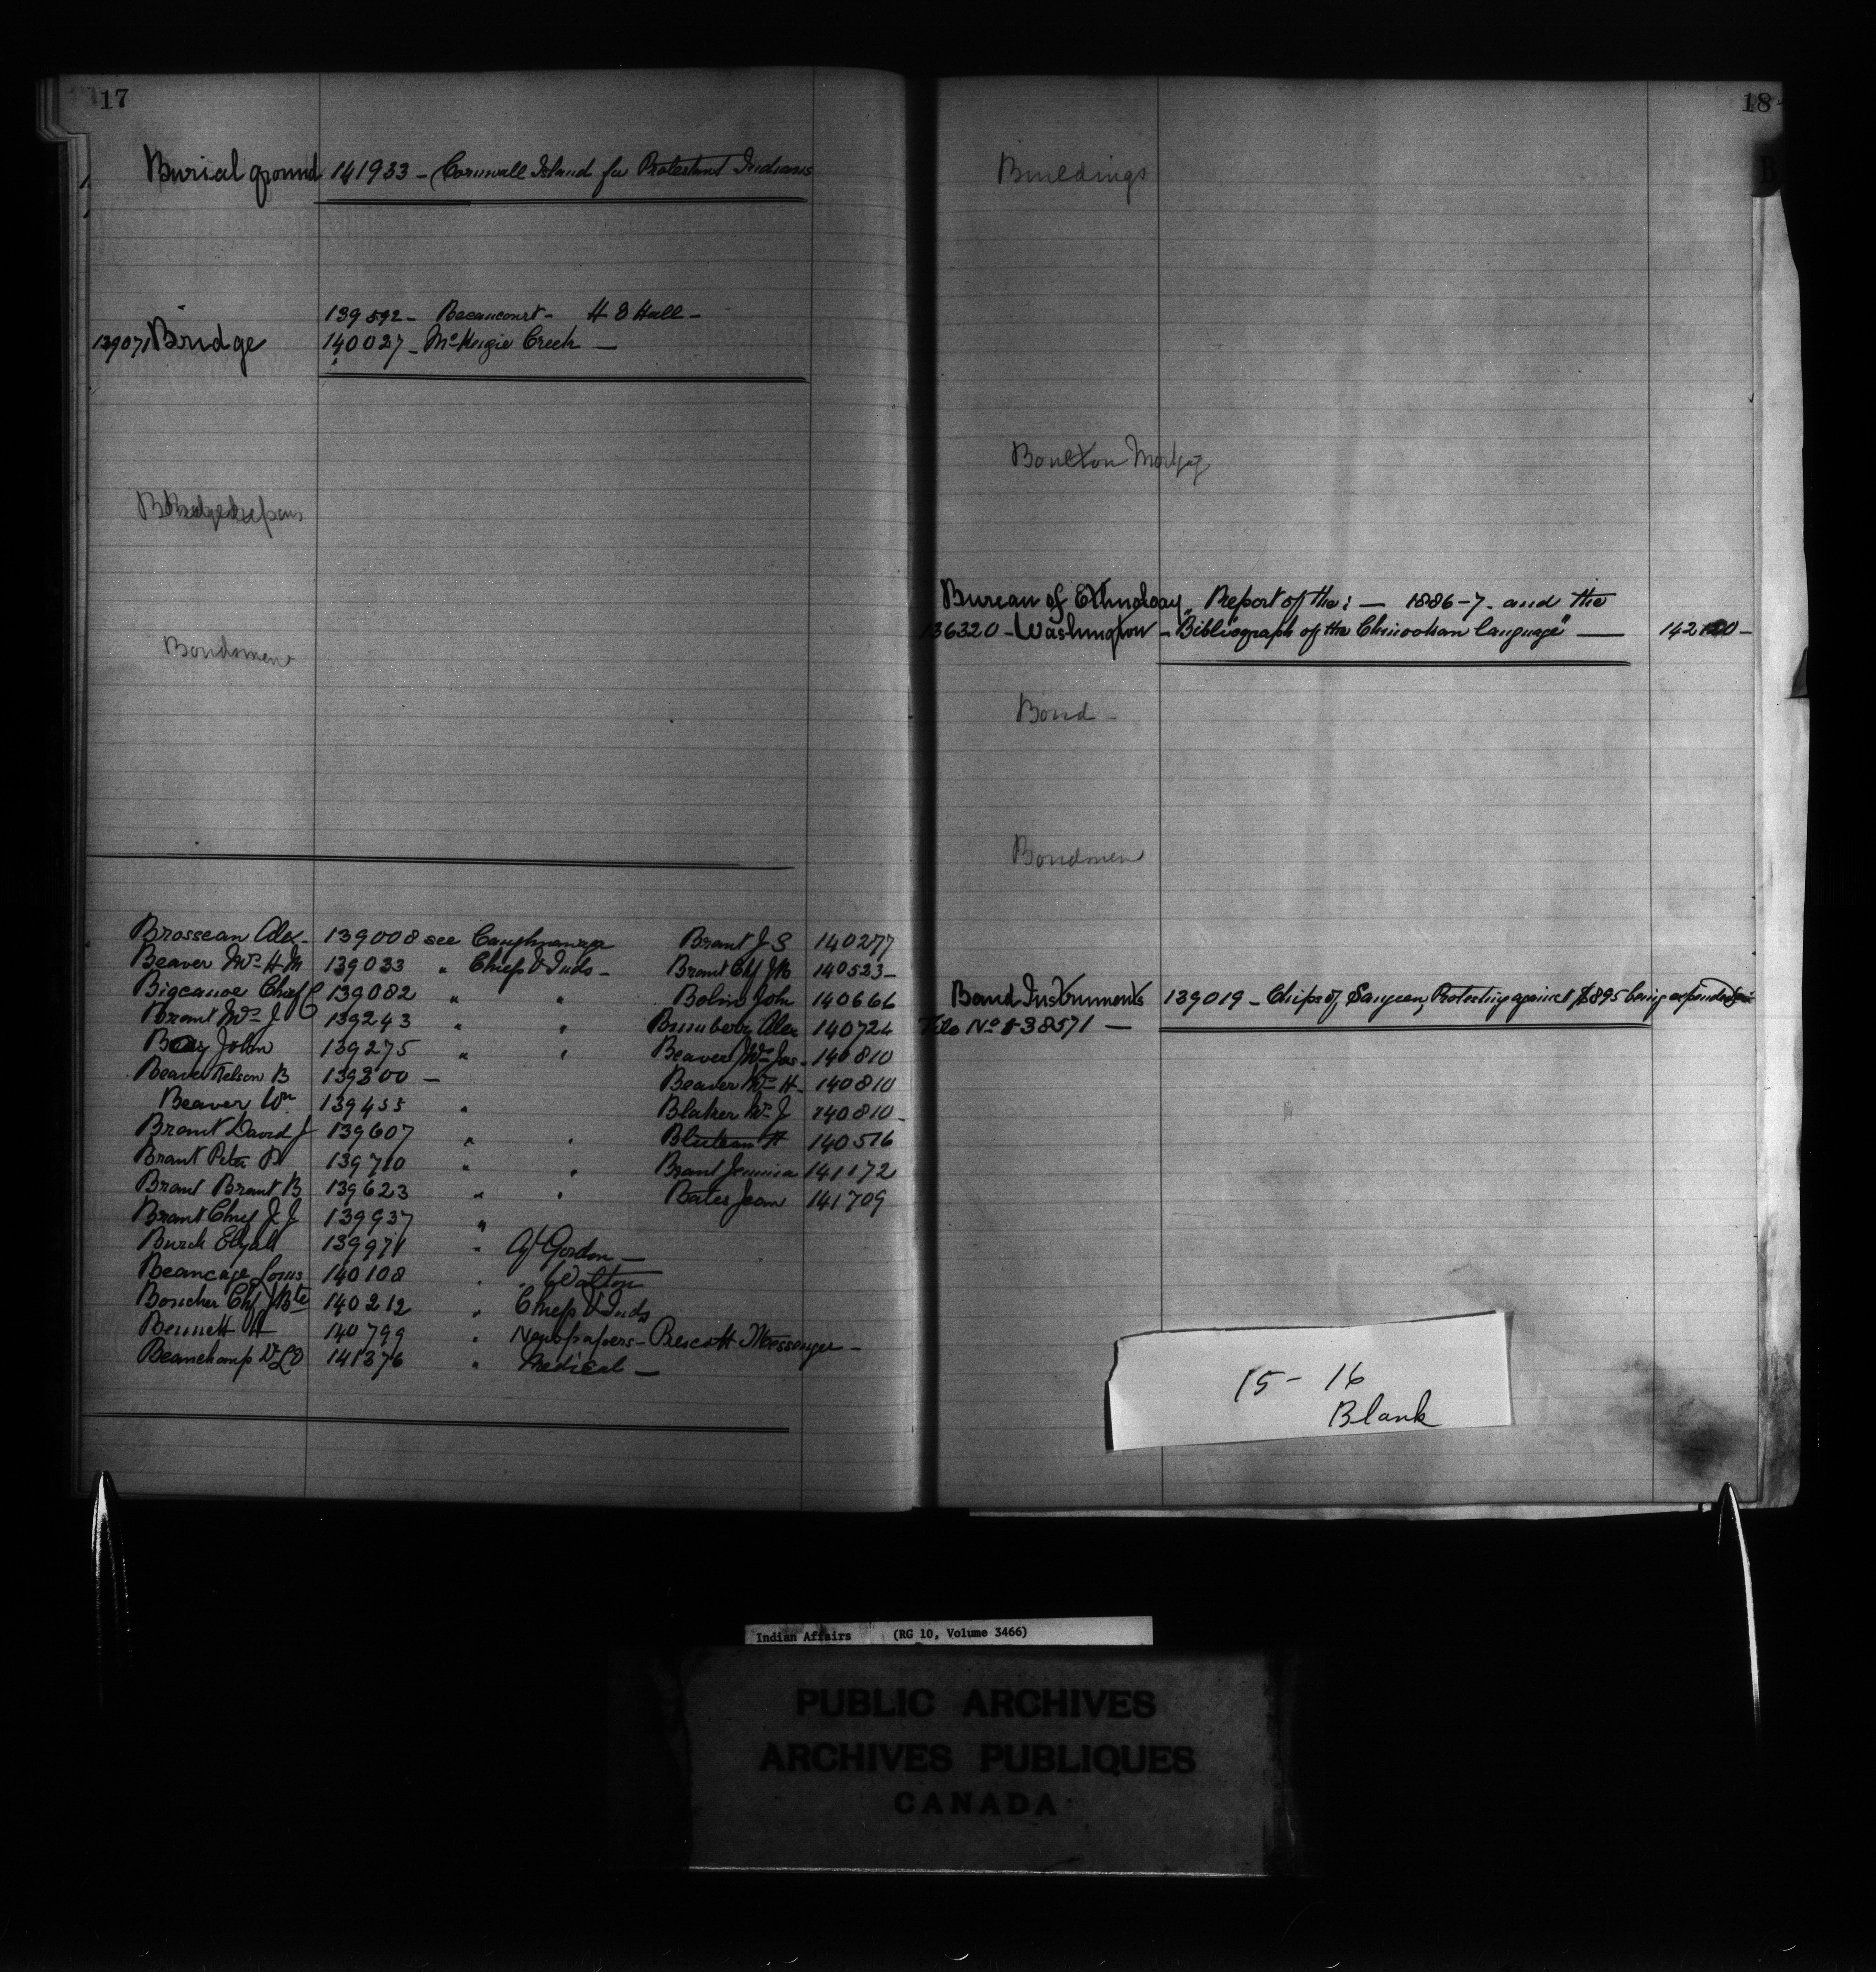 17
Burial ground 141933 - Cornwall Island for Protestant Indians
139592 - Becancourt - H S Hall -
139071 Bridge 140027 - McKeigie Creek -
Bondsmen
Brosseau Alex. 139008 see Caughnawaga Brant J S 140277
Beaver Mrs H M 139033 " Chiefs & Inds - Brant Chf J B 140523 -
Bigcanoe Chief C 139082 " " Bolin John 140666
Brant Mrs J 139243 " " Brunberry Alex 140724
John 139275 " " Beaver Mrs Jas. 140810
Beaver Nelson B 139300 - Beaver Mrs H. 140810
Beaver Wm 139455 " Blaker Mrs J 140810 -
Brant David J 139607 " " H 140516
Brant Peter P 139710 " " Brant Jemima 141172
Brant Brant B 139623 " " Bates Jean 141709
Brant Chief J J 139937 "
Burch Elijah 139971 " Agt Gordon -
Beaucage Louis 140108 " " Walton
Boucher Chf J Bte 140212 " Chiefs & Inds
Bennett H 140799 " Newspapers - Prescott Messenger -
Beauchamp Dr L O 141376 " Medical -
18
B
Buildings
Boulton Mortgg
Bureau of Ethnology, Report of the: - 1886-7. and the
136320 - Washington - "Bibliograph of the Chinookan language" - 142100 -
Bond -
Bondmen
Band Instruments 139019 - Chiefs of Saugeen, Protesting against $895 being expended for
File No 138571 -
15 - 16
Blank
Indian Affairs (RG 10, Volume 3466)
PUBLIC ARCHIVES
ARCHIVES PUBLIQUES
CANADA